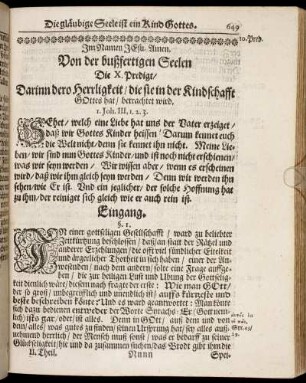 Die gläubige Seele ist ein Kind Gottes. 649
Im Namen JEsu. Amen.
10. Pred.
Von der bußfertigen Seelen
Die X. Predigt/
Darinn dero Herrligkeit / die sie in der Kindschafft
GOttes hat / betrachtet wird.
1. Joh. III, 1. 2. 3.
SEhet / welch eine Liebe hat uns der Vater erzeiget /
daß wir Gottes Kinder heissen! Darum kennet euch
die Welt nicht / denn sie kennet ihn nicht. Meine Lie-
ben / wir sind nun Gottes Kinder / und ist noch nicht erschienen /
was wir seyn werden / Wir wissen aber / wenn es erscheinen
wird / daß wir ihm gleich seyn werden / Denn wir werden ihn
sehen / wie Er ist. Und ein jeglicher / der solche Hoffnung hat
zu ihm / der reiniget sich gleich wie er auch rein ist.
Eingang.
§. 1.
IN einer gottseligen Gesellschafft / ward zu beliebter
Zeitkürtzung beschlossen / daß an statt der Rätzel und
anderer Erzehlungen / die offt viel sündlicher Eitelkeit
und ärgerlicher Thorheit in sich haben / einer der An-
wesenden / nach dem andern / solte eine Frage auffge-
ben / die zur heiligen Lust und Ubung der Gottselig-
keit dienlich wäre / diesem nach fraget der erste: Wie man GOtt /
der so groß / unbegreifflich und unendlich ist / auffs kürtzeste und
beste beschreiben könte? Und es ward geantwortet: Man könte
sich dazu bedienen entweder der Worte Sirachs: Er / Gott nem-
lich / ists gar, oder / ist alles. Denn in GOtt / aus dem und von
dem / alles / was gutes zu finden / seinen Ursprung hat / sey alles auß-
nehmend herrlich / der Mensch muß sonst / was er bedarff zu seiner
Glückseligkeit / hie und da zusammen suchen / das Brodt gibt ihm die
II. Theil. Nnnn Spei-